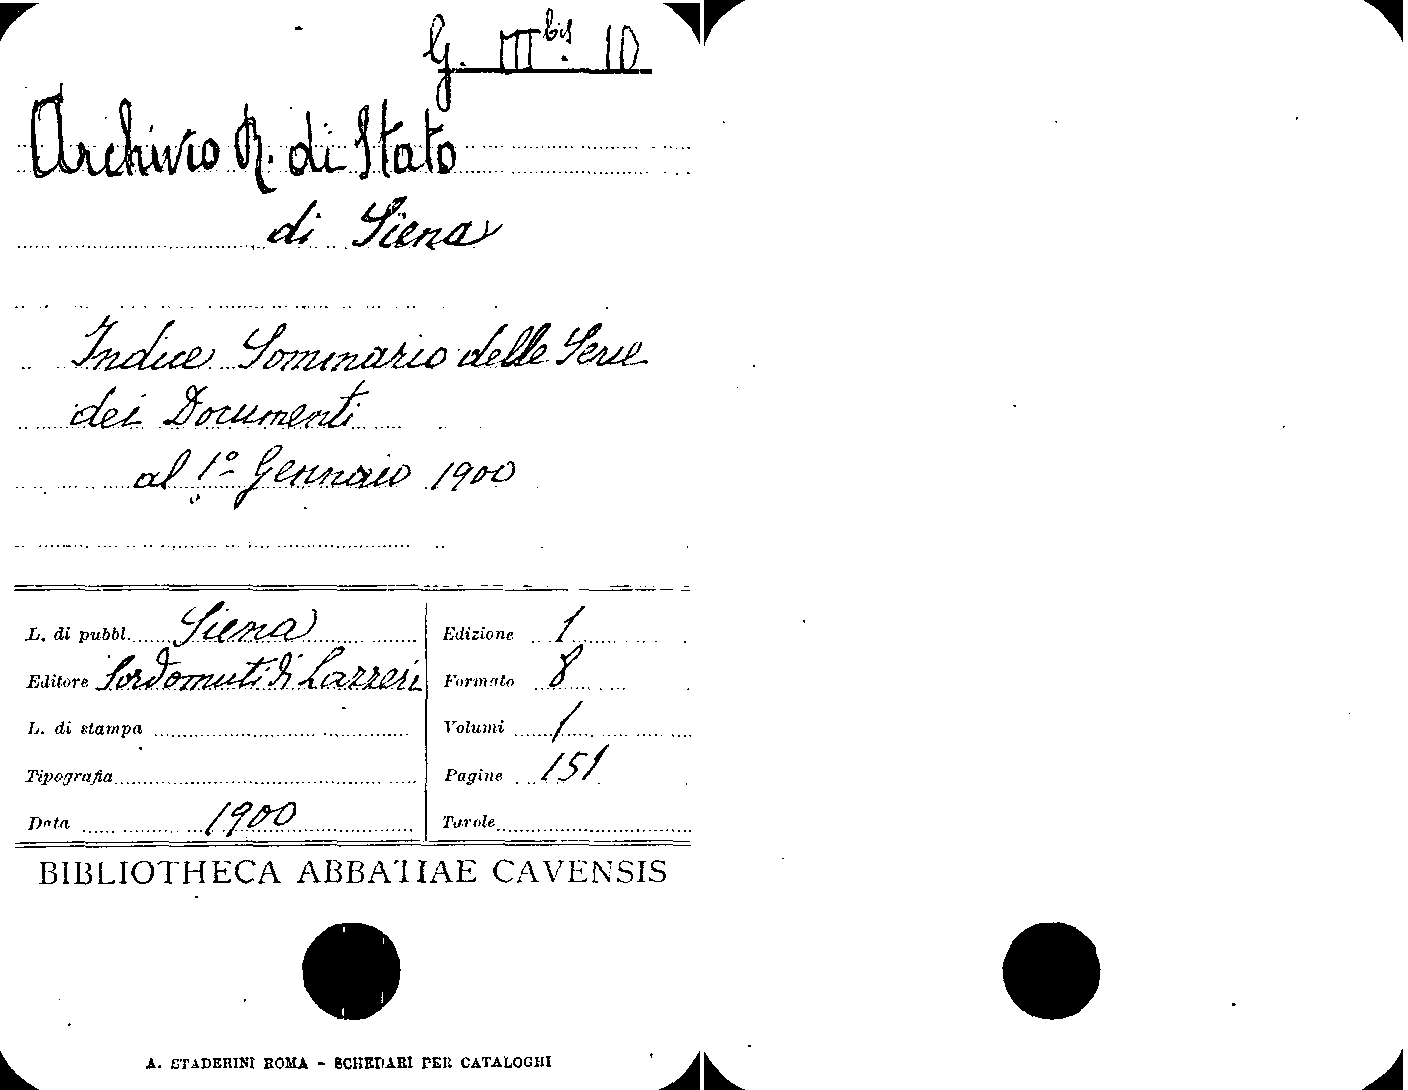 G. III bis. 10
Archivio R. di Stato
di Siena
Indice Sommario delle Serie
dei Documenti
al 1º Gennaio 1900
L. di pubbl. Siena
Editore Sordomuti di Lazzeri
L. di stampa
Tipografia
Data 1900
Edizione 1
Formato 8
Volumi 1
Pagine 151
Tavole
BIBLIOTHECA ABBATIAE CAVENSIS
A. STADERINI ROMA - SCHEDARI PER CATALOGHI